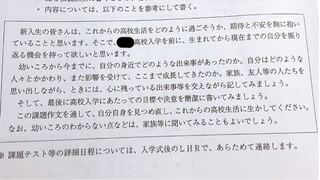 ・内容については、以下のことを参考にして書く。
新入生の皆さんは、これからの高校生活をどのように過ごそうか、期待と不安を胸に抱い
ていることと思います。そこで、高校入学を前に、生まれてから現在までの自分を振り
返る機会を持って欲しいと思います。
幼いころから今までに、自分の身近でどのような出来事があったのか。自分はどのような
人々とかかわり、また影響を受けて、ここまで成長してきたのか。家族、友人等の人たちを
思い出しながら、ときには、心に残っている出来事等を交えながら記してみましょう。
そして、最後に高校入学にあたっての目標や決意を簡潔に書いてみましょう。
この課題作文を通して、自分自身を見つめ直し、これからの高校生活に生かしてください。
なお、幼いころのわからない点などは、家族等に聞いてみることもよいでしょう。
※ 課題テスト等の詳細日程については、入学式後のLHRで、あらためて連絡します。